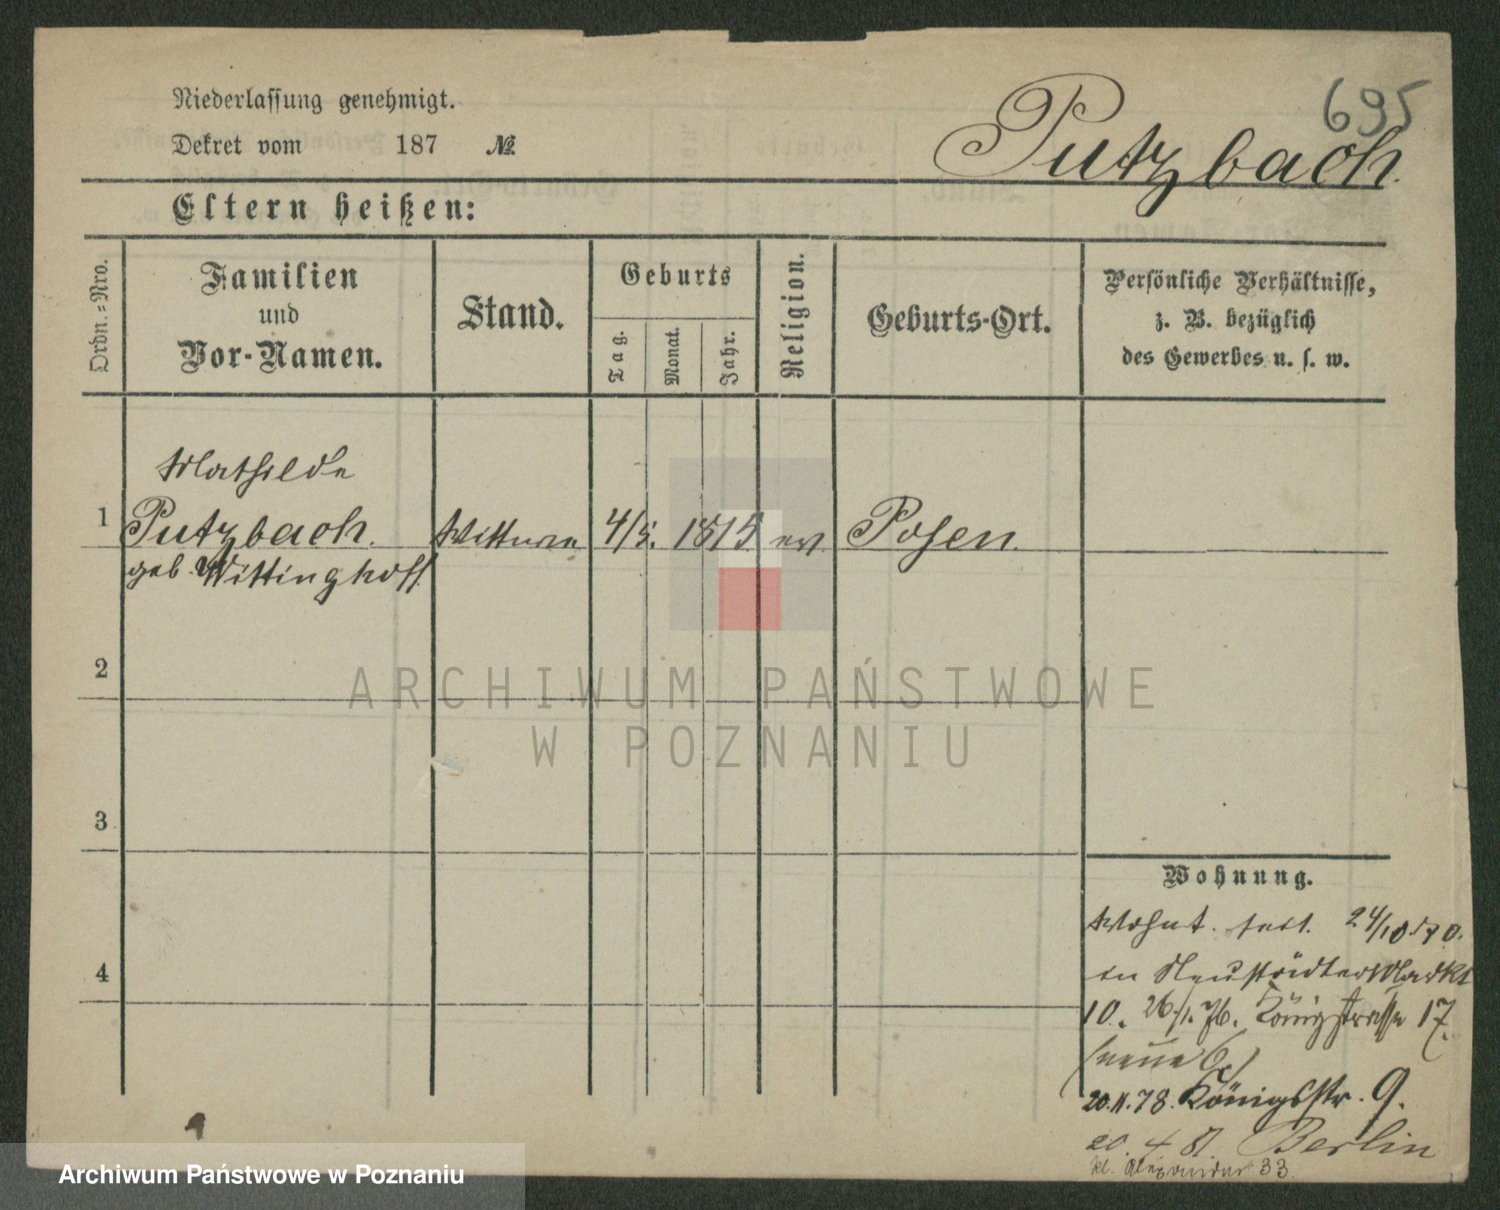 695
Niederlassung genehmigt.
Putzbach.
Dekret vom 187 №
Eltern heißen:
Ordn.-Nro.
Familien
und
Vor-Namen.
Stand.
Geburts
Tag.
Monat.
Jahr.
Religion.
Geburts-Ort.
Persönliche Verhältnisse,
z. B. bezüglich
des Gewerbes u. s. w.
Mathilde
1 Putzbach. Wittwe 4/5. 1815 ev. Posen.
geb. Wittinghoff
2
3
4
Wohnung.
Wohnt seit 24/10.70.
in Neustädter Markt
10. 26/1.76. Königstrasse 17.
(neue 6)
20.11.78. Königsstr. 9.
20. 4 81 Berlin
kl. Alexander 33.
ARCHIWUM PAŃSTWOWE
W POZNANIU
Archiwum Państwowe w Poznaniu